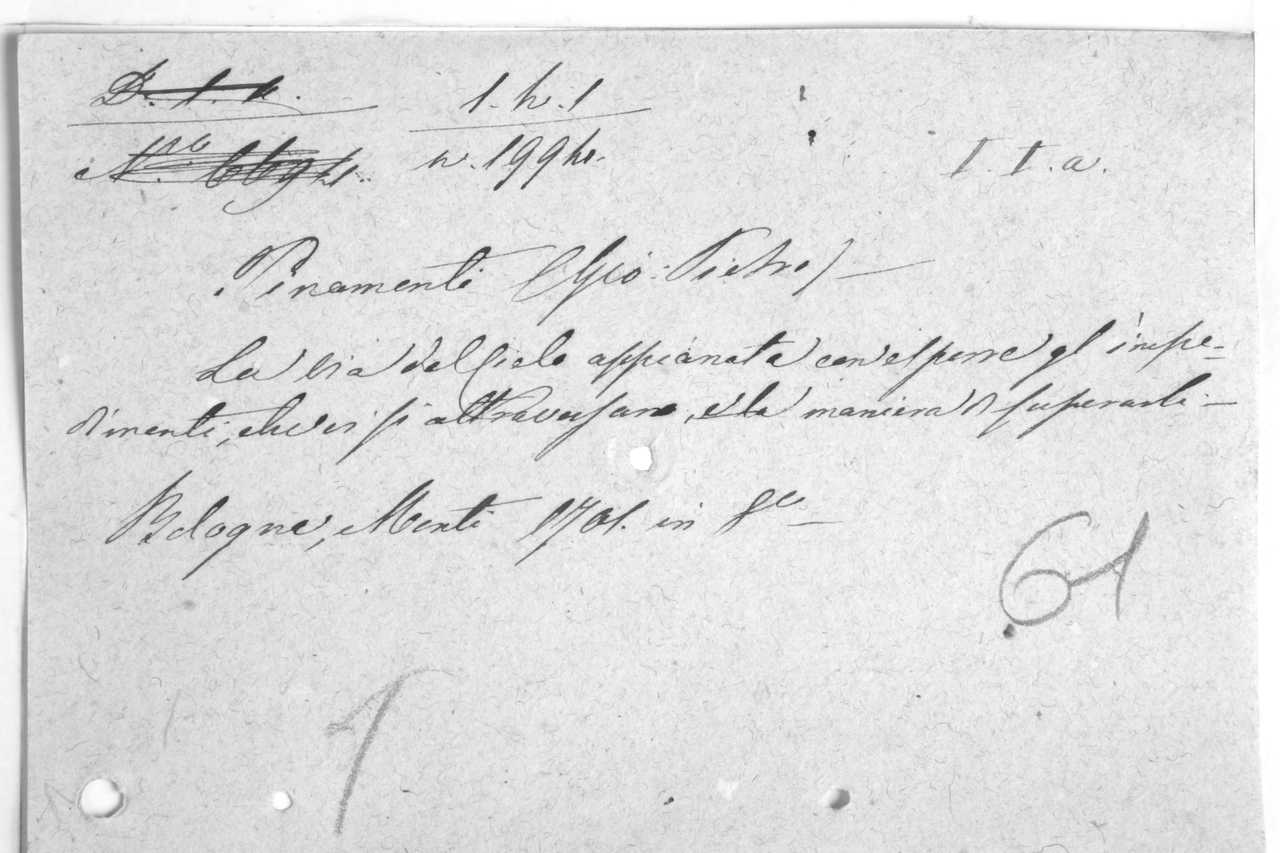 1. h. 1
n. 199
I. I. a.
Pinamenti (Gio: Pietro) —
La via del Cielo appianata con esporre gl' impe-
dimenti, che vi si attraversano, e la maniera di superarli —
Bologna, Monti 1701. in 8º —
61
1